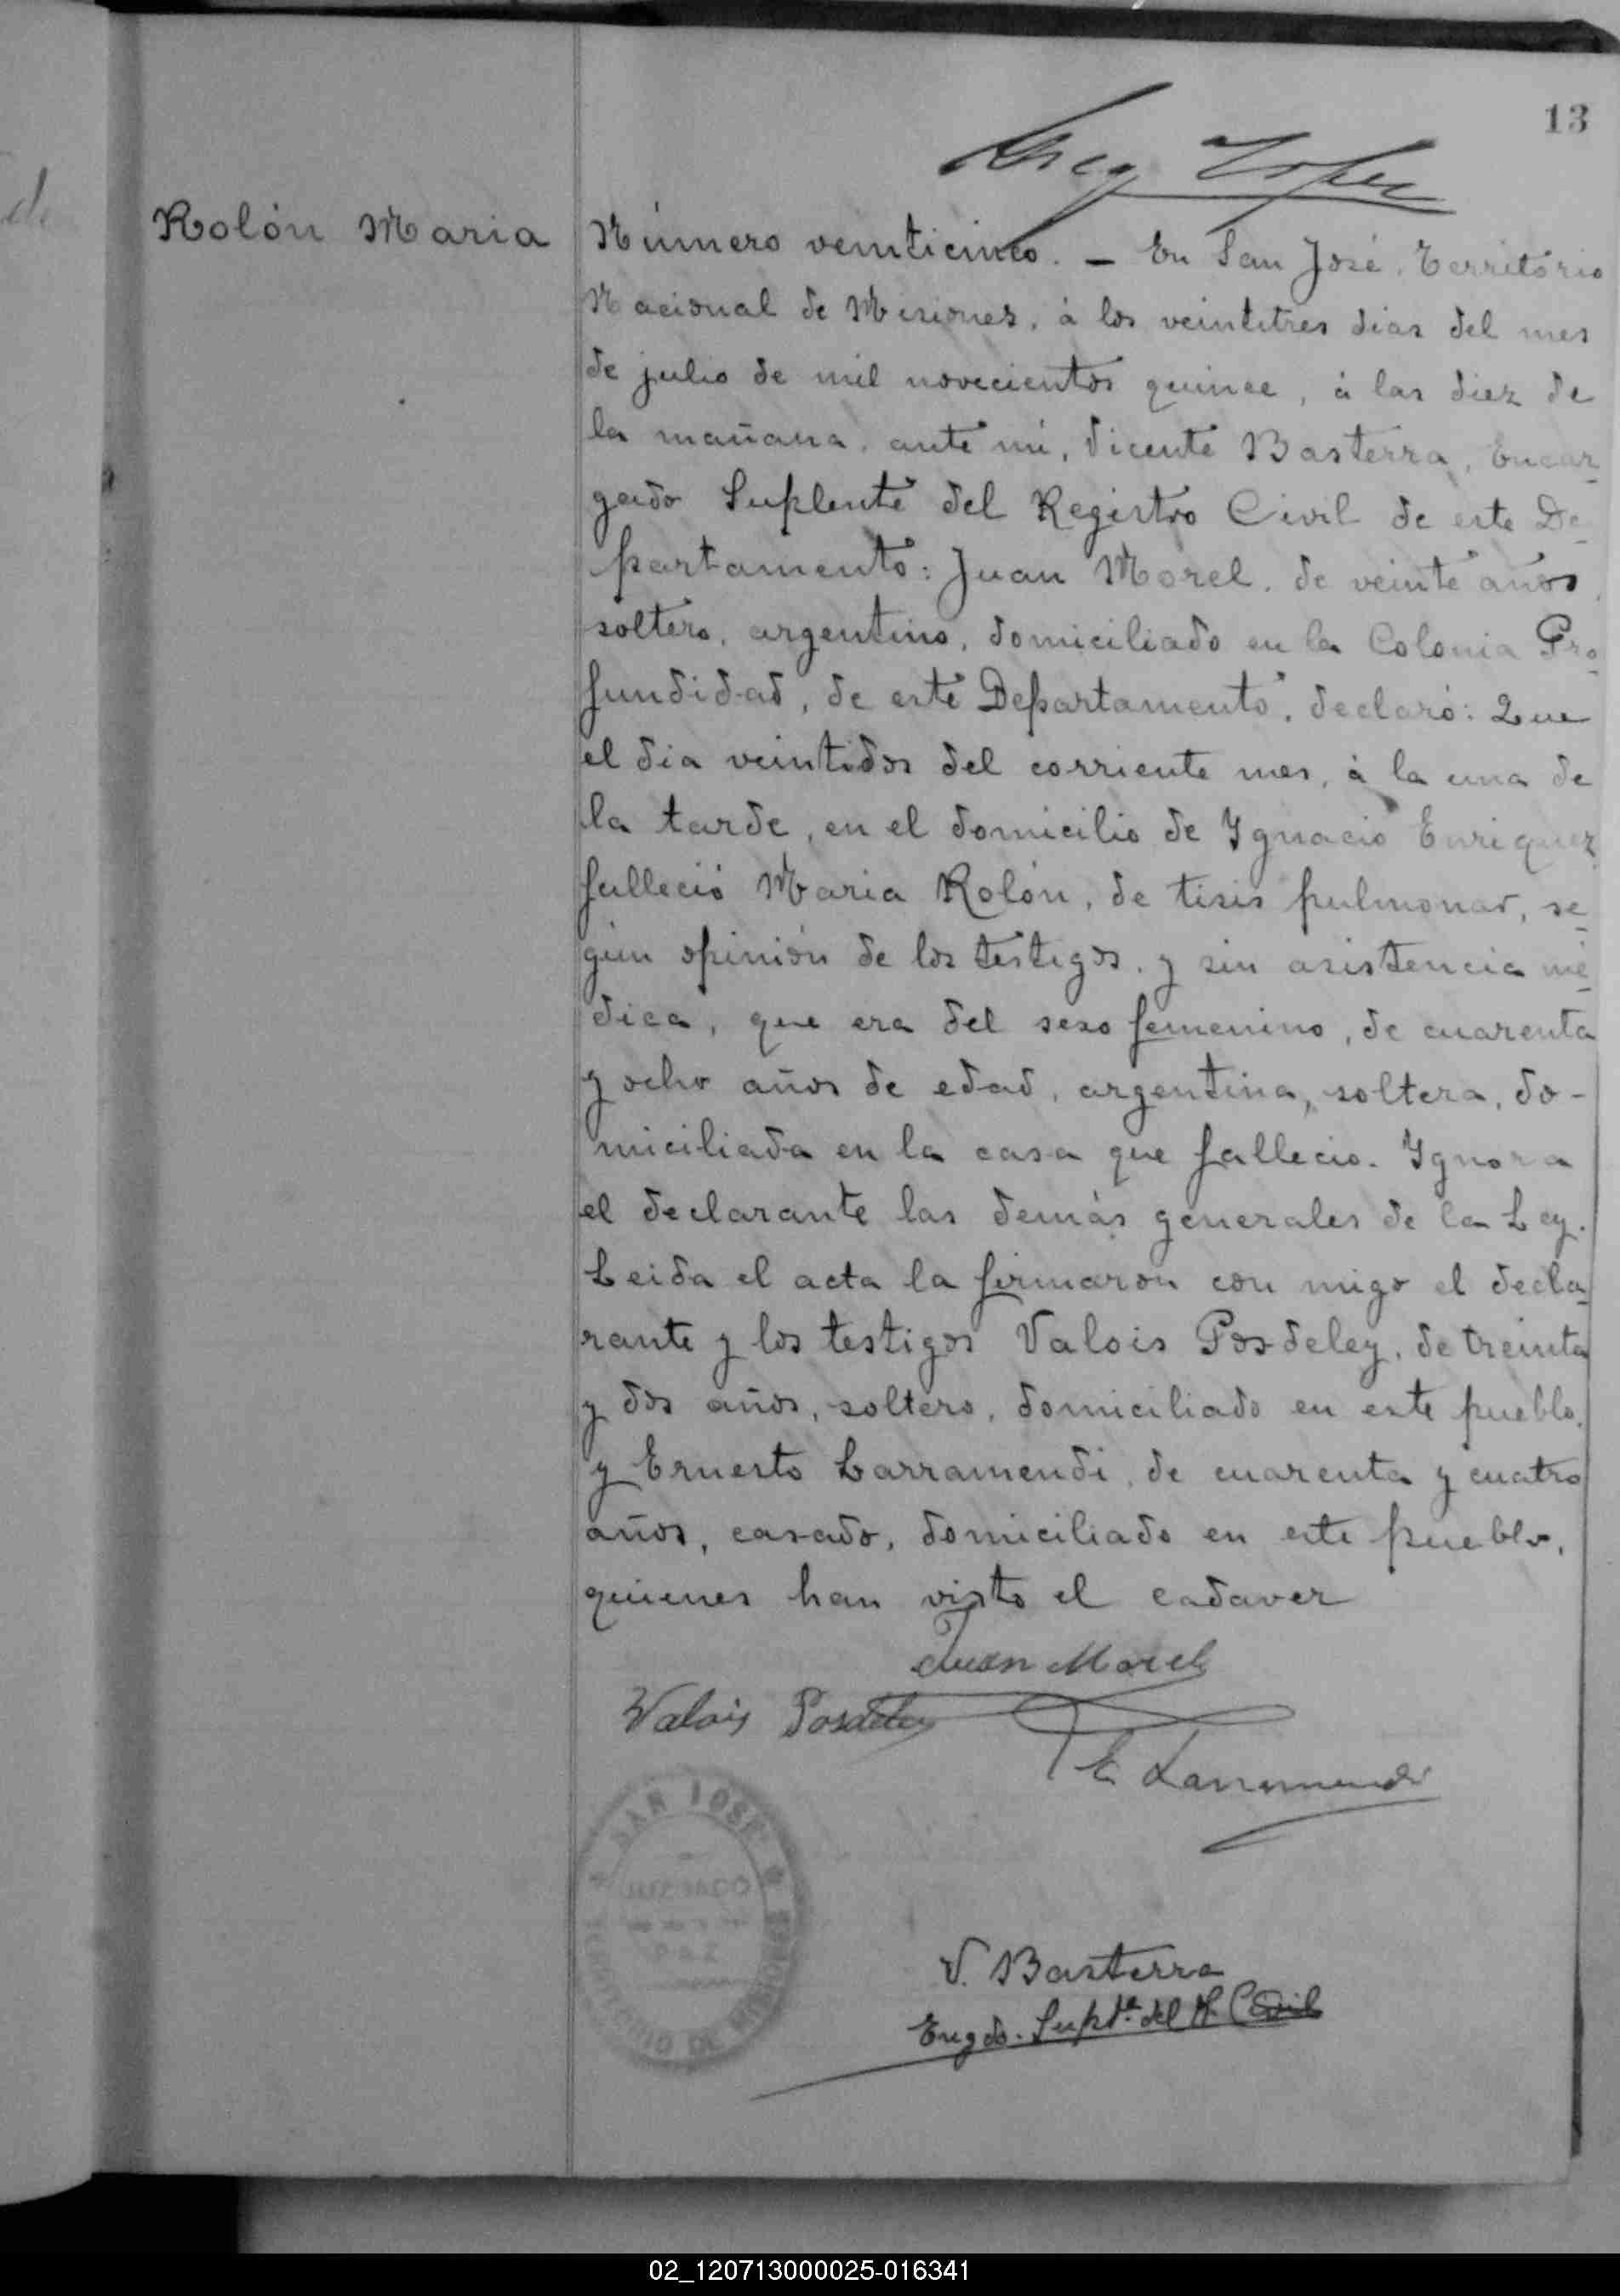 13
Rolón Maria
Número veinticinco. — En San José, Território
Nacional de Misiones, á los veintitres dias del mes
de julio de mil novecientos quince, á las diez de
la mañana, ante mi, Vicente Basterra, Encar-
gado Suplente del Registro Civil de este De-
partamento: Juan Morel, de veinte años,
soltero, argentino, domiciliado en la Colonia Pro-
fundidad, de este Departamento, declaró: Que
el dia veintidos del corriente mes, á la una de
la tarde, en el domicilio de Ygnacio Enriquez
falleció Maria Rolón, de tisis pulmonar, se-
gún opinión de los testigos, y sin asistencia mé-
dica, que era del sexo femenino, de cuarenta
y ocho años de edad, argentina, soltera, do-
miciliada en la casa que fallecio. Ygnora
el declarante las demás generales de la Ley.
Leida el acta la firmaron con migo el decla-
rante y los testigos Valois Posdeley, de treinta
y dos años, soltero, domiciliado en este pueblo,
y Ernesto Larramendi, de cuarenta y cuatro
años, casado, domiciliado en este pueblo,
quienes han visto el cadaver
Juan Morel
Valois Posdeley
E Larramendi
SAN JOSE
JUZGADO
DE
PAZ
TERRITORIO DE MISIONES
V. Basterra
Engdo. Supte. del R. Civil
02_120713000025-016341